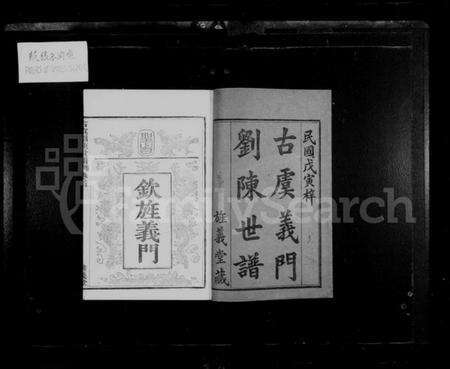 民國戊寅梓
古虞義門
劉陳世譜
旌義堂藏
聖旨
欽旌義門
FamilySearch